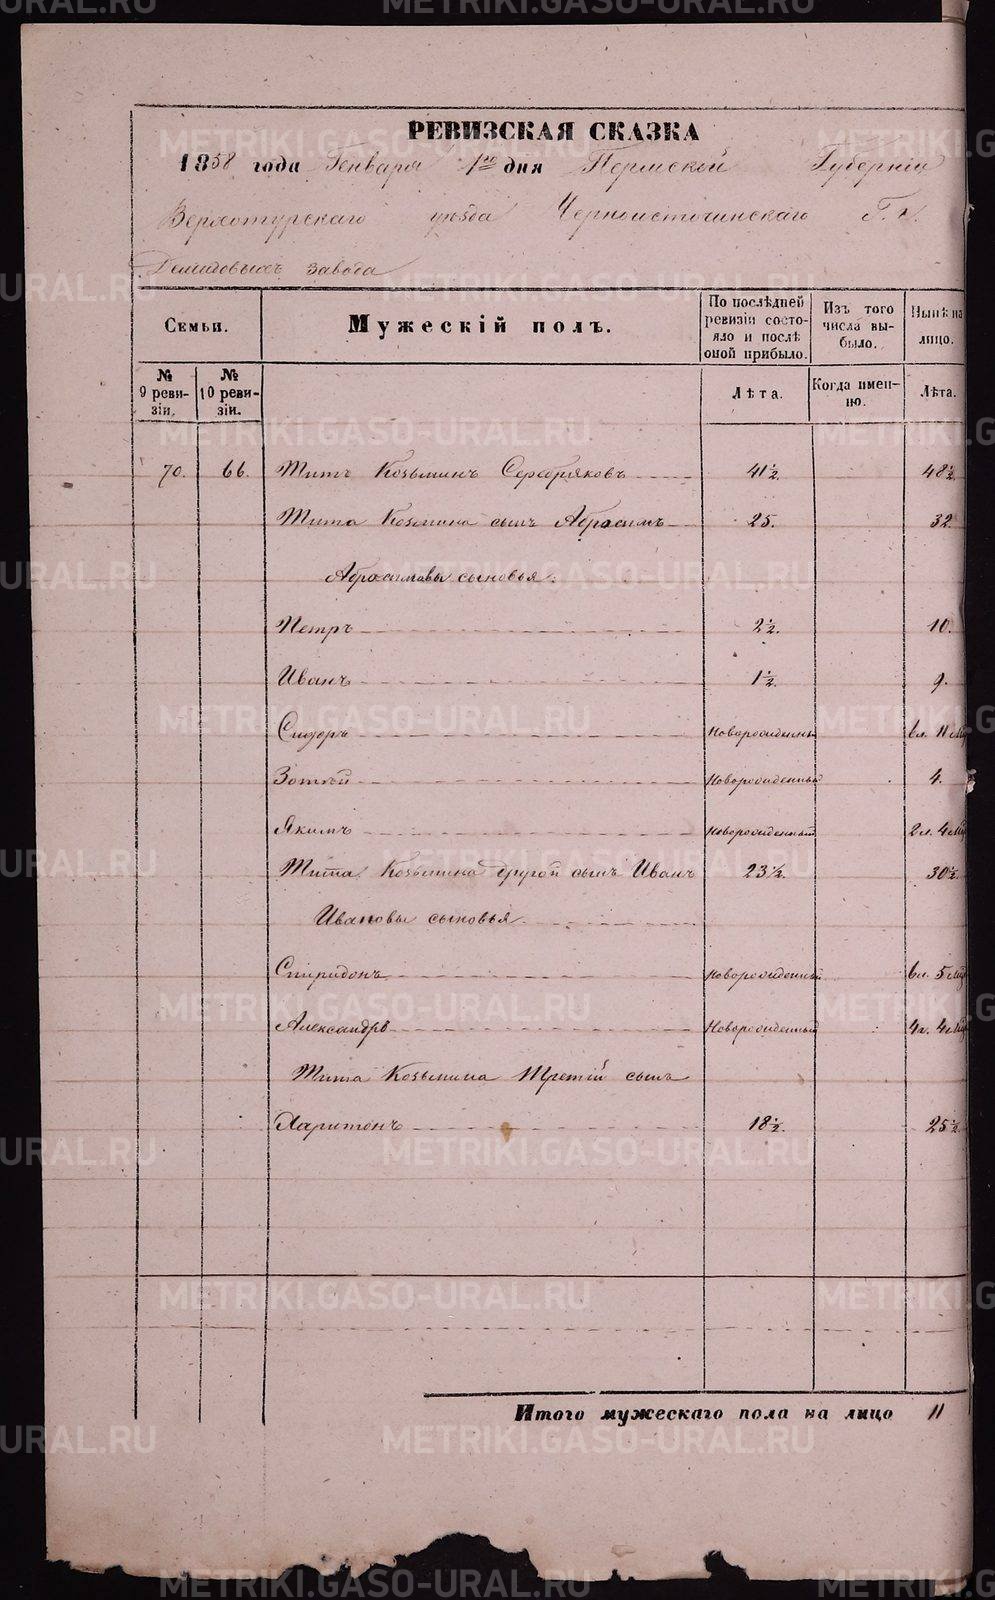 РЕВИЗСКАЯ СКАЗКА
1858 года Генваря 1го дня Пермской Губерніи
Верхотурскаго уѣзда Черноисточинскаго Г.г.
Демидовыхъ завода
Семьи.
Мужескій полъ.
По послѣдней ревизіи состояло и послѣ оной прибыло.
Изъ того числа выбыло.
Нынѣ на лицо.
№ 9 ревизіи.
№ 10 ревизіи.
Лѣта.
Когда именно.
Лѣта.
70. 66. Титъ Козьминъ Серебряковъ 41½ 48½
Тита Козмина сынъ Абросимъ 25. 32
Абросимовы сыновья:
Петръ 2½. 10.
Иванъ 1½. 9.
Сидоръ Новорожденный 6л. 11 мѣ
Зотѣй Новорожденный 4.
Якимъ Новорожденный 2л. 4 мѣ
Тита Козьмина другой сынъ Иванъ 23½. 30½.
Ивановы сыновья
Спиридонъ Новорожденный 6л. 5 мѣ
Александръ Новорожденный 4г. 4 мѣ
Тита Козьмина Третій сынъ
Харитонъ 18½. 25½.
Итого мужескаго пола на лицо 11
METRIKI.GASO-URAL.RU